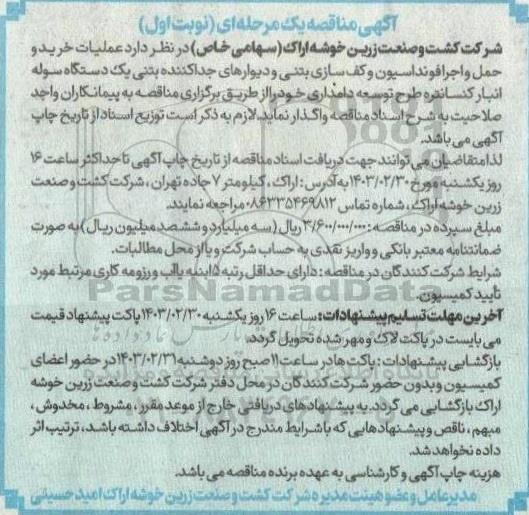 آگهی مناقصه یک مرحله‌ای (نوبت اول)
شرکت کشت و صنعت زرین خوشه اراک (سهامی خاص) در نظر دارد عملیات خرید و
حمل و اجرا فونداسیون و کف سازی بتنی و دیوارهای جداکننده بتنی یک دستگاه سوله
انبار کنسانتره طرح توسعه دامداری خود را از طریق برگزاری مناقصه به پیمانکاران واجد
صلاحیت به شرح اسناد مناقصه واگذار نماید. لازم به ذکر است توزیع اسناد از تاریخ چاپ
آگهی می باشد.
لذا متقاضیان می توانند جهت دریافت اسناد مناقصه از تاریخ چاپ آگهی تا حداکثر ساعت ۱۶
روز یکشنبه مورخ ۱۴۰۳/۰۲/۳۰ به آدرس: اراک، کیلومتر ۷ جاده تهران، شرکت کشت و صنعت
زرین خوشه اراک، شماره تماس ۰۸۶۳۳۵۴۶۹۸۱۲ مراجعه نمایند.
مبلغ سپرده در مناقصه: ۳/۶۰۰/۰۰۰/۰۰۰ ریال (سه میلیارد و ششصد میلیون ریال) به صورت
ضمانتنامه معتبر بانکی و واریز نقدی به حساب شرکت و یا از محل مطالبات.
شرایط شرکت کنندگان در مناقصه: دارای حداقل رتبه ۵ ابنیه یا آب و رزومه کاری مرتبط مورد
تأیید کمیسیون.
آخرین مهلت تسلیم پیشنهادات: ساعت ۱۶ روز یکشنبه ۱۴۰۳/۰۲/۳۰ پاکت پیشنهاد قیمت
می بایست در پاکت لاک و مهر شده تحویل گردد.
بازگشایی پیشنهادات: پاکت ها در ساعت ۱۱ صبح روز دوشنبه ۱۴۰۳/۰۲/۳۱ در حضور اعضای
کمیسیون و بدون حضور شرکت کنندگان در محل دفتر شرکت کشت و صنعت زرین خوشه
اراک بازگشایی می گردد. به پیشنهادهای دریافتی خارج از موعد مقرر، مشروط، مخدوش،
مبهم، ناقص و پیشنهادهایی که با شرایط مندرج در آگهی اختلاف داشته باشد، ترتیب اثر
داده نخواهد شد.
هزینه چاپ آگهی و کارشناسی به عهده برنده مناقصه می باشد.
مدیرعامل و عضو هیئت مدیره شرکت کشت و صنعت زرین خوشه اراک امید حسیبی
ParsNamadData